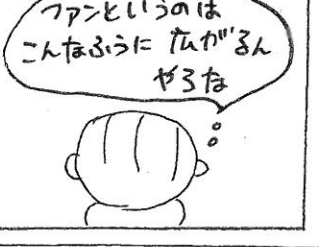 ファンというのは
こんなふうに 広がるん
やろな